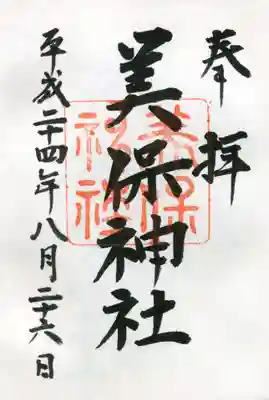 奉拝
美保神社
平成二十四年八月二十六日
美保神社